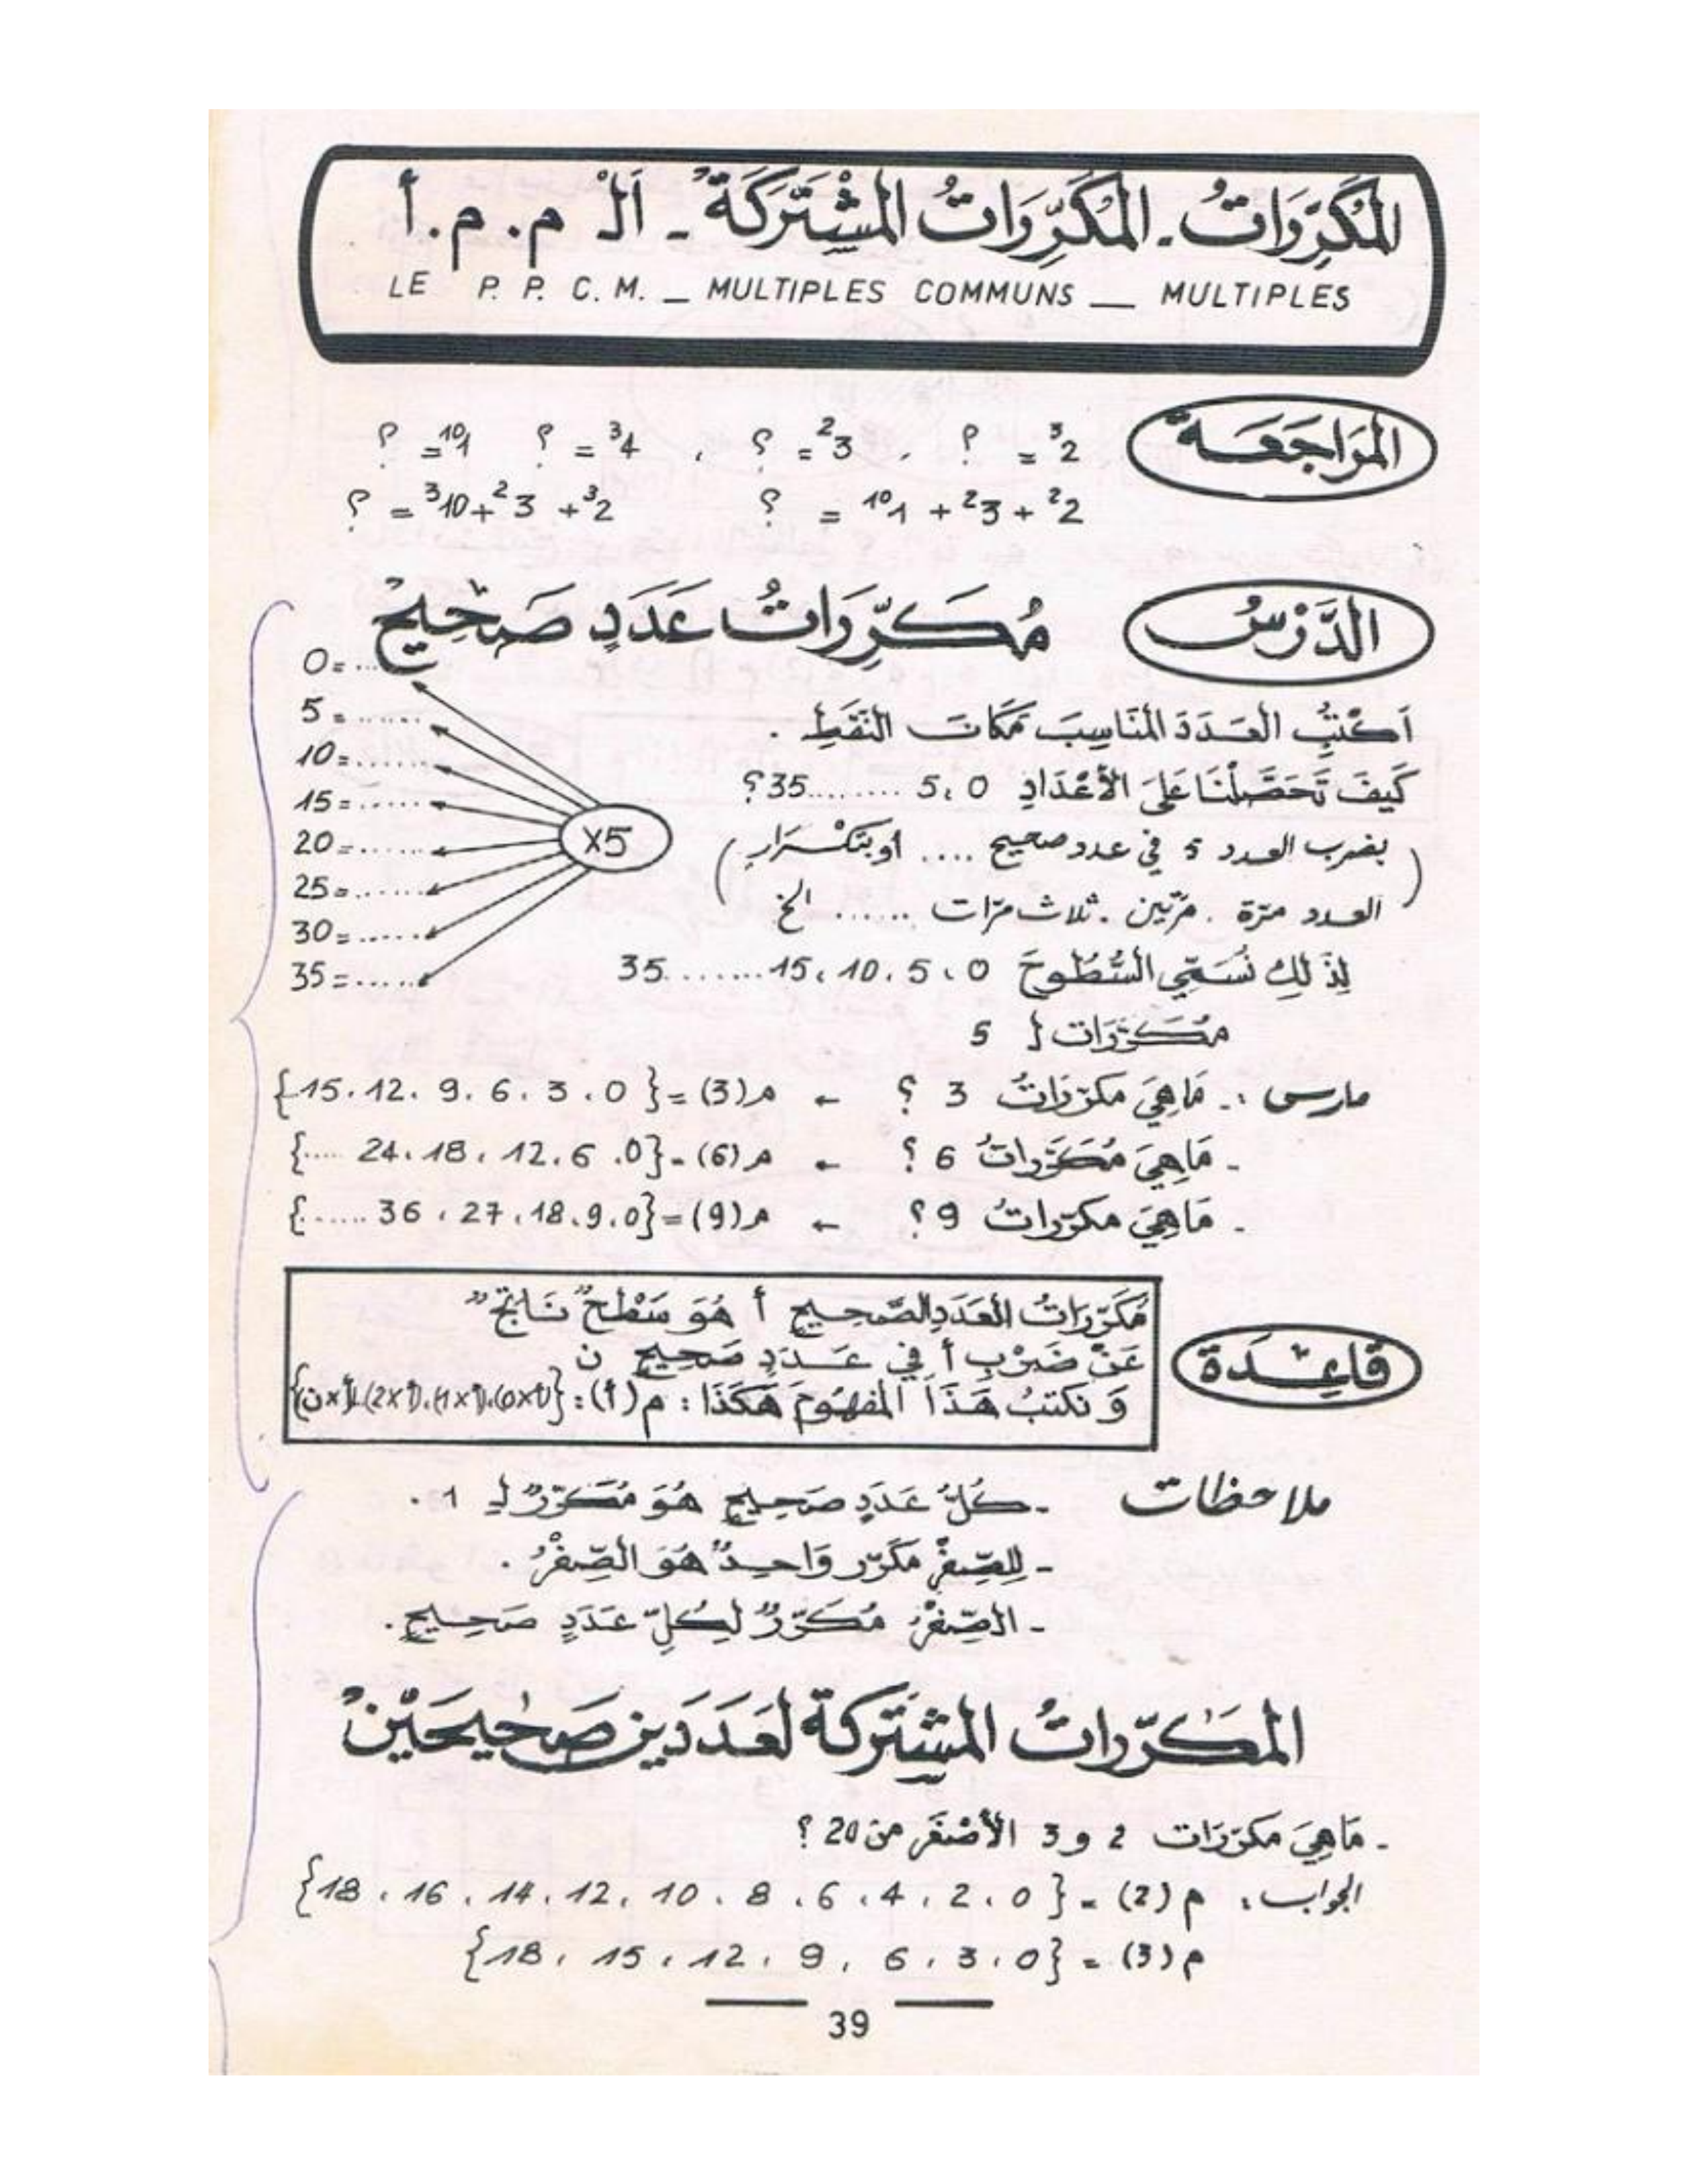 المُكَرِّرَاتُ - المُكَرِّرَاتُ المُشْتَرَكَةُ - اَلْـ م . م . أ
LE P. P. C. M. _ MULTIPLES COMMUNS __ MULTIPLES
المُرَاجَعَةُ
³2 = ؟ ، ²3 = ؟ ، ³4 = ؟ ¹⁰1 = ؟
²2 + ²3 + ¹⁰1 = ؟ ³2 + ²3 + ³10 = ؟
الدَّرْسُ
مُكَرِّرَاتُ عَدَدٍ صَحِيحٍ
0 = ......
5 = ......
10 = ......
15 = ......
20 = ......
25 = ......
30 = ......
35 = ......
X5
اَكْتُبُ العَدَدَ المُنَاسِبَ مَكَانَ النُّقَطِ .
كَيْفَ تَحَصَّلْنَا عَلَى الأَعْدَادِ 0 ، 5 ........ 35 ؟
( بضرب العدد 5 في عدد صحيح .... أو بتكرار
العدد مرّة . مرّتين . ثلاث مرّات ...... الخ )
لِذَلِكَ نُسَمِّي السُّطُوحَ 0 ، 5 ، 10 ، 15 ........ 35
مُكَرِّرَات لـ 5
مارس :. مَا هِيَ مكرّرَاتُ 3 ؟ ← م (3) = { 0 ، 3 ، 6 ، 9 ، 12 ، 15 }
- مَا هِيَ مُكَرِّرَاتُ 6 ؟ ← م (6) = { 0 ، 6 ، 12 ، 18 ، 24 ..... }
- مَا هِيَ مكرّراتُ 9 ؟ ← م (9) = { 0 ، 9 ، 18 ، 27 ، 36 ...... }
قَاعِدَة
مُكَرِّرَاتُ العَدَدِ الصَّحِيحِ أ هُوَ سَطْحٌ "نَاتِجٌ"
عَنْ ضَرْبِ أ في عَدَدٍ صَحِيحٍ ن
وَ نكتبُ هَذَا المَفهُومَ هَكَذَا : م (أ) : { (0×أ) ، (1×أ) ، (2×أ) ... (أ×ن) }
ملاحظات
- كُلُّ عَدَدٍ صَحِيحٍ هُوَ مُكَرِّرٌ لِـ 1 .
- لِلصِّفْرِ مُكَرّر وَاحِدٌ هُوَ الصِّفْرُ .
- الصِّفْرُ مُكَرِّرٌ لِكُلِّ عَدَدٍ صَحِيحٍ .
المكرّراتُ المشتَركَة لعَدَدَين صَحِيحَيْن
- مَا هِيَ مكرّرَات 2 و 3 الأَصْغَر من 20 ؟
الجواب : م (2) = { 0 ، 2 ، 4 ، 6 ، 8 ، 10 ، 12 ، 14 ، 16 ، 18 }
م (3) = { 0 ، 3 ، 6 ، 9 ، 12 ، 15 ، 18 }
39